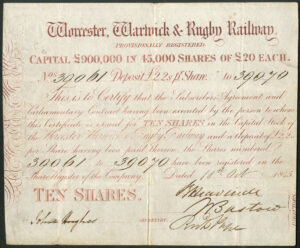 Worcester, Warwick & Rugby Railway.
PROVISIONALLY REGISTERED.
CAPITAL £900,000 IN 45,000 SHARES OF £20 EACH.
No 39061 Deposit £2.2s. Share. to 39070
This is to Certify that the Subscribers Agreement and
Parliamentary Contract having been executed by the person to whom
this Certificate is issued for TEN SHARES in the Capital Stock of
the Worcester Warwick & Rugby Railway and a Deposit of £2.2s
per Share having been paid thereon the Shares numbered
39061 to 39070 have been registered in the
Share Register of the Company. Dated Oct. 1845
TEN SHARES.
SECRETARY.